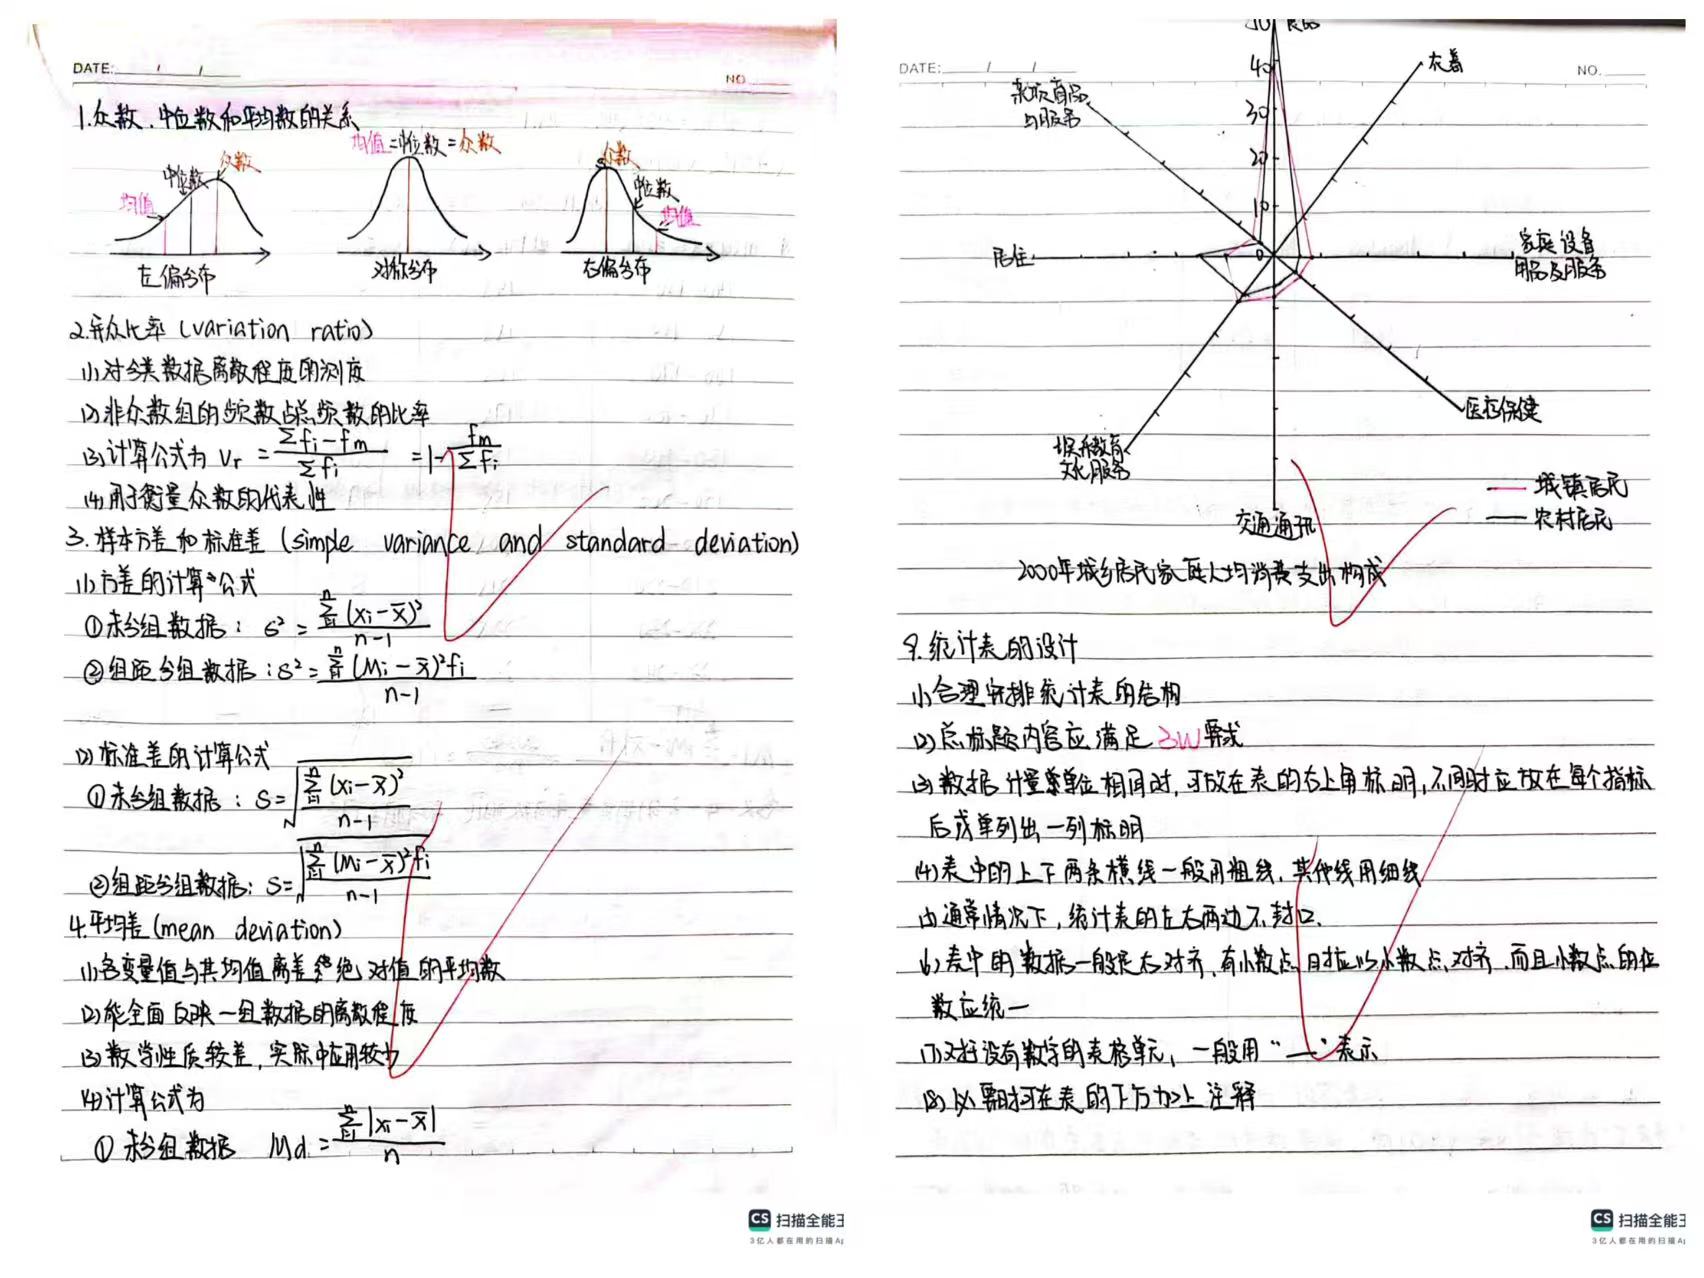 DATE: / /
NO
1.众数、中位数和平均数的关系
均值 中位数 众数
均值=中位数=众数
众数 中位数 均值
左偏分布 对称分布 右偏分布
2.异众比率 (variation ratio)
(1)对分类数据离散程度的测度
(2)非众数组的频数占总频数的比率
(3)计算公式为 Vr = (Σfi-fm)/Σfi = 1-fm/Σfi
(4)用于衡量众数的代表性
3.样本方差和标准差 (simple variance and standard deviation)
(1)方差的计算公式
①未分组数据: S² = Σ(xi-x̄)²/(n-1)
②组距分组数据: S² = Σ(Mi-x̄)²fi/(n-1)
(2)标准差的计算公式
①未分组数据: S=√(Σ(xi-x̄)²/(n-1))
②组距分组数据: S=√(Σ(Mi-x̄)²fi/(n-1))
4.平均差(mean deviation)
(1)各变量值与其均值离差绝对值的平均数
(2)能全面反映一组数据的离散程度
(3)数学性质较差,实际中应用较少
(4)计算公式为
①未分组数据 Md = Σ|xi-x̄|/n
CS 扫描全能王
3亿人都在用的扫描Ap
DATE: / /
NO.
50 食品
40
30
20
10
0
衣着
家庭设备
用品及服务
医疗保健
交通通讯
娱乐教育
文化服务
居住
杂项商品
与服务
城镇居民
农村居民
2000年城乡居民家庭人均消费支出构成
9.统计表的设计
(1)合理安排统计表的结构
(2)总标题内容应满足3W要求
(3)数据计量单位相同时,可放在表的右上角标明,不同时应放在每个指标
后或单列出一列标明
(4)表中的上下两条横线一般用粗线,其他线用细线
(5)通常情况下,统计表的左右两边不封口.
(6)表中的数据一般是右对齐,有小数点时应以小数点对齐,而且小数点的位
数应统一
(7)对于没有数字的表格单元,一般用“—”表示
(8)必要时可在表的下方加上注释
CS 扫描全能王
3亿人都在用的扫描Ap